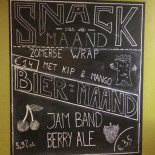 SNACK
van de
MAAND
ZOMERSE WRAP
MET KIP & MANGO
BIER van de MAAND
JAM BAND
BERRY ALE